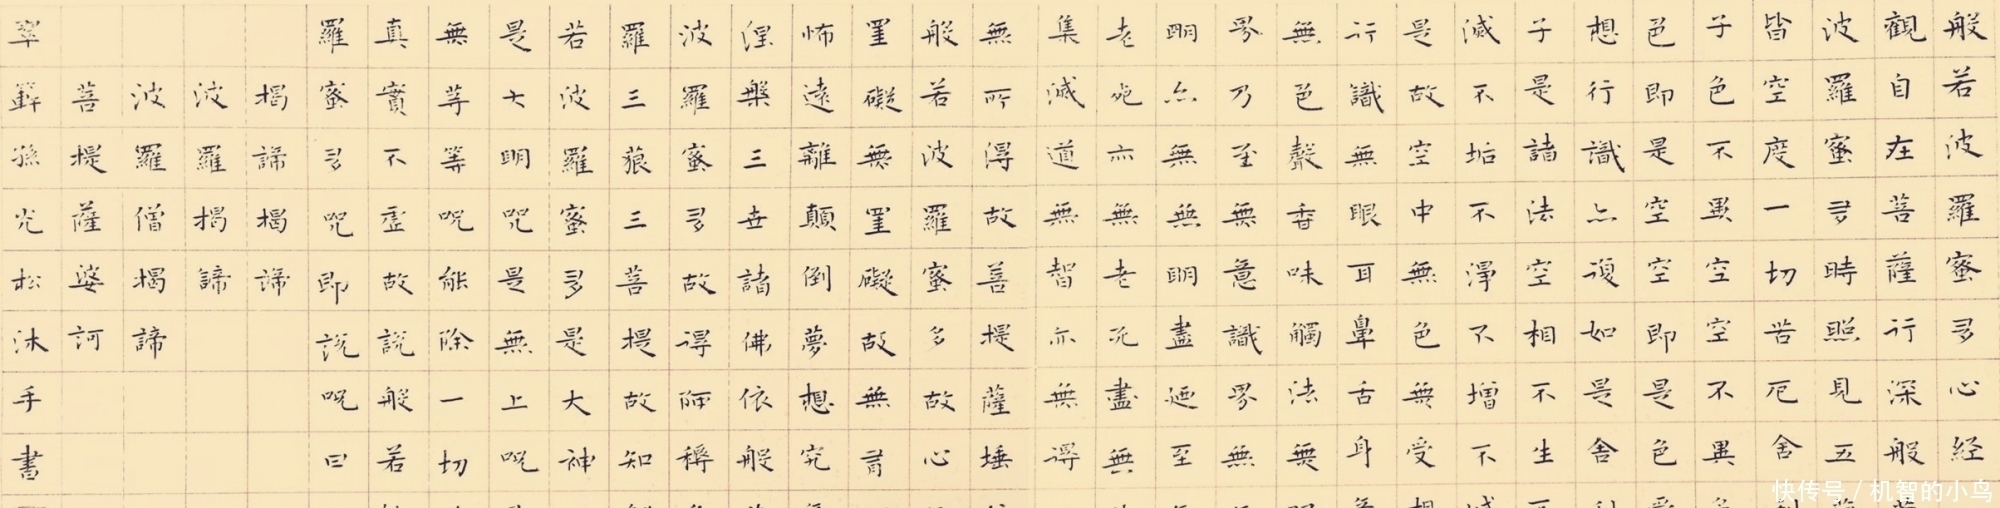 般若波羅蜜多心经
觀自在菩薩行深般
波羅蜜多時照見五
皆空度一切苦厄舍
子色不異空空不異
色即是空空即是色
想行識亦復如是舍
子是諸法空相不生
滅不垢不淨不增不
是故空中無色無受
行識無眼耳鼻舌身
無色聲香味觸法無
界乃至無意識界無
明亦無無明盡迺至
老死亦無老死盡無
集滅道無智亦無得
無所得故菩提薩埵
般若波羅蜜多故心
罣礙無罣礙故無有
怖遠離顛倒夢想究
涅槃三世諸佛依般
波羅蜜多故得阿耨
羅三藐三菩提故知
若波羅蜜多是大神
是大明咒是無上咒
無等等咒能除一切
真實不虛故說般若
羅蜜多咒即說咒曰
揭諦揭諦
波羅揭諦
波羅僧揭諦
菩提薩婆訶
孫光松沐手書
快传号 / 机智的小鸟